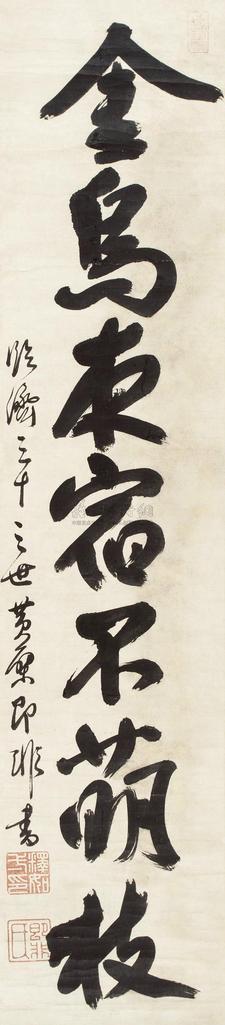 金烏夜宿不萌枝
臨濟三十三世黃檗即非書